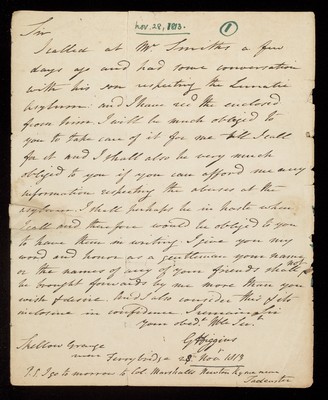 Nov. 28, 1813. 1
Sir
I called at Mr. Smiths a few
days ago and had some conversation
with his son respecting the Lunatic
Asylum: and I have recd the enclosed
from him. I will be much obliged to
you to take care of it for me till I call
for it and I shall also be very much
obliged to you if you can afford me any
information respecting the abuses at the
asylum. I shall perhaps be in haste when
I call and therefore would be obliged to you
to have them in writing. I give you my
word and honor as a gentleman your name
or the names of any of your friends shall not
be brought forwards by me more than you
wish & desire. And I also consider this & its
inclosure in confidence. I remain Sir
Your obedt. Hble Sert.
G Higgins
Skellow Grange
near Ferrybridge 28 Nov 1813
P.S. I go to morrow to Col. Marshalls Newton Kyme near
Tadcaster